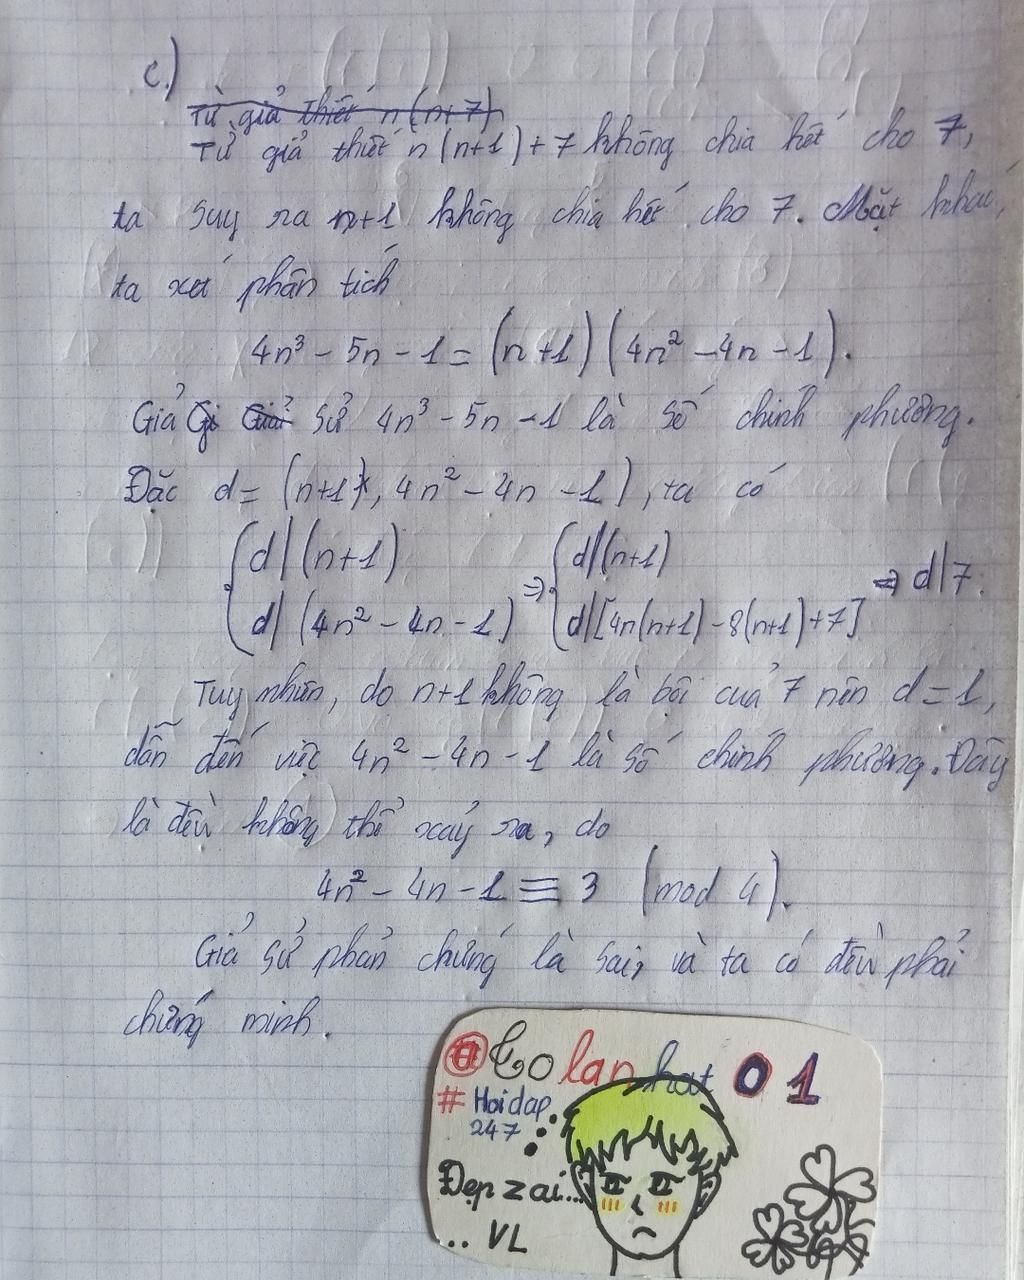 c.)
Từ giả thiết n(n+7)
Từ giả thiết n(n+1)+7 không chia hết cho 7,
ta suy ra n+1 không chia hết cho 7. Mặt khác,
ta xét phân tích
4n³ - 5n - 1 = (n+1)(4n² - 4n - 1).
Giả Gi Giải sử 4n³ - 5n - 1 là số chính phương.
Đặc d = (n+1, 4n² - 4n - 1), ta có
{ d|(n+1) ⇒ { d|(n+1) ⇒ d|7.
d|(4n² - 4n - 1) d|[4n(n+1) - 8(n+1) + 7]
Tuy nhiên, do n+1 không là bội của 7 nên d = 1,
dẫn đến việc 4n² - 4n - 1 là số chính phương. Đây
là điều không thể xảy ra, do
4n² - 4n - 1 ≡ 3 (mod 4).
Giả sử phản chứng là sai, và ta có điều phải
chứng minh.
@Colanhat01
# Hoidap
247
Đẹp zai...
.. VL